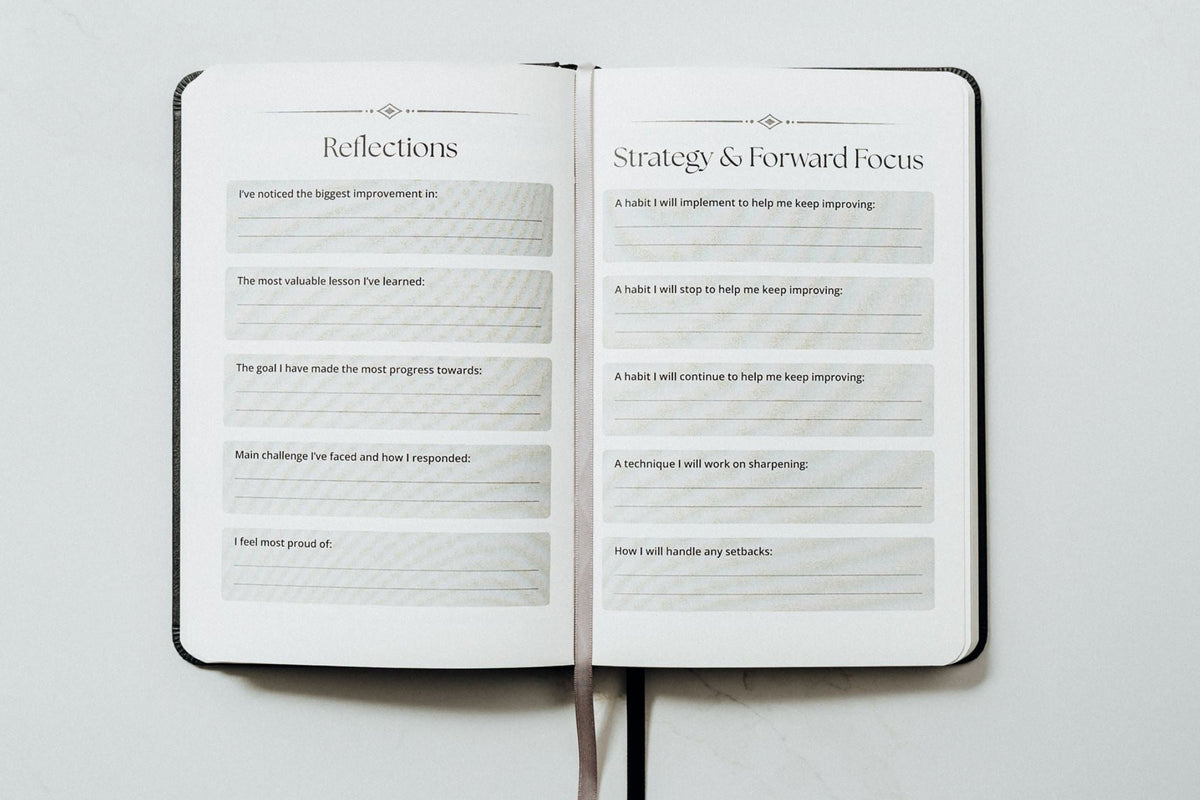 Reflections
I've noticed the biggest improvement in:
The most valuable lesson I've learned:
The goal I have made the most progress towards:
Main challenge I've faced and how I responded:
I feel most proud of:
Strategy & Forward Focus
A habit I will implement to help me keep improving:
A habit I will stop to help me keep improving:
A habit I will continue to help me keep improving:
A technique I will work on sharpening:
How I will handle any setbacks: